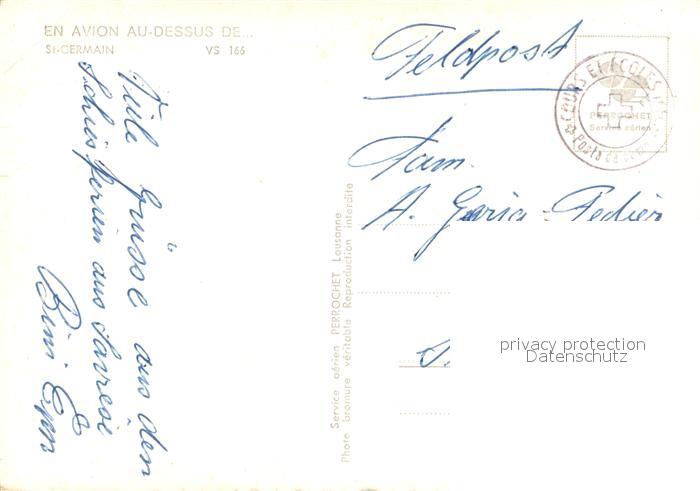 EN AVION AU-DESSUS DE...
St-GERMAIN VS 166
Viele Grüsse aus den
Schiessferien aus Savièse
Feldpost
COURS ET ÉCOLES
Poste de camp
PERROCHET
Service aérien
Fam.
A.
Service aérien PERROCHET Lausanne
Photo bromure véritable Reproduction interdite
privacy protection
Datenschutz